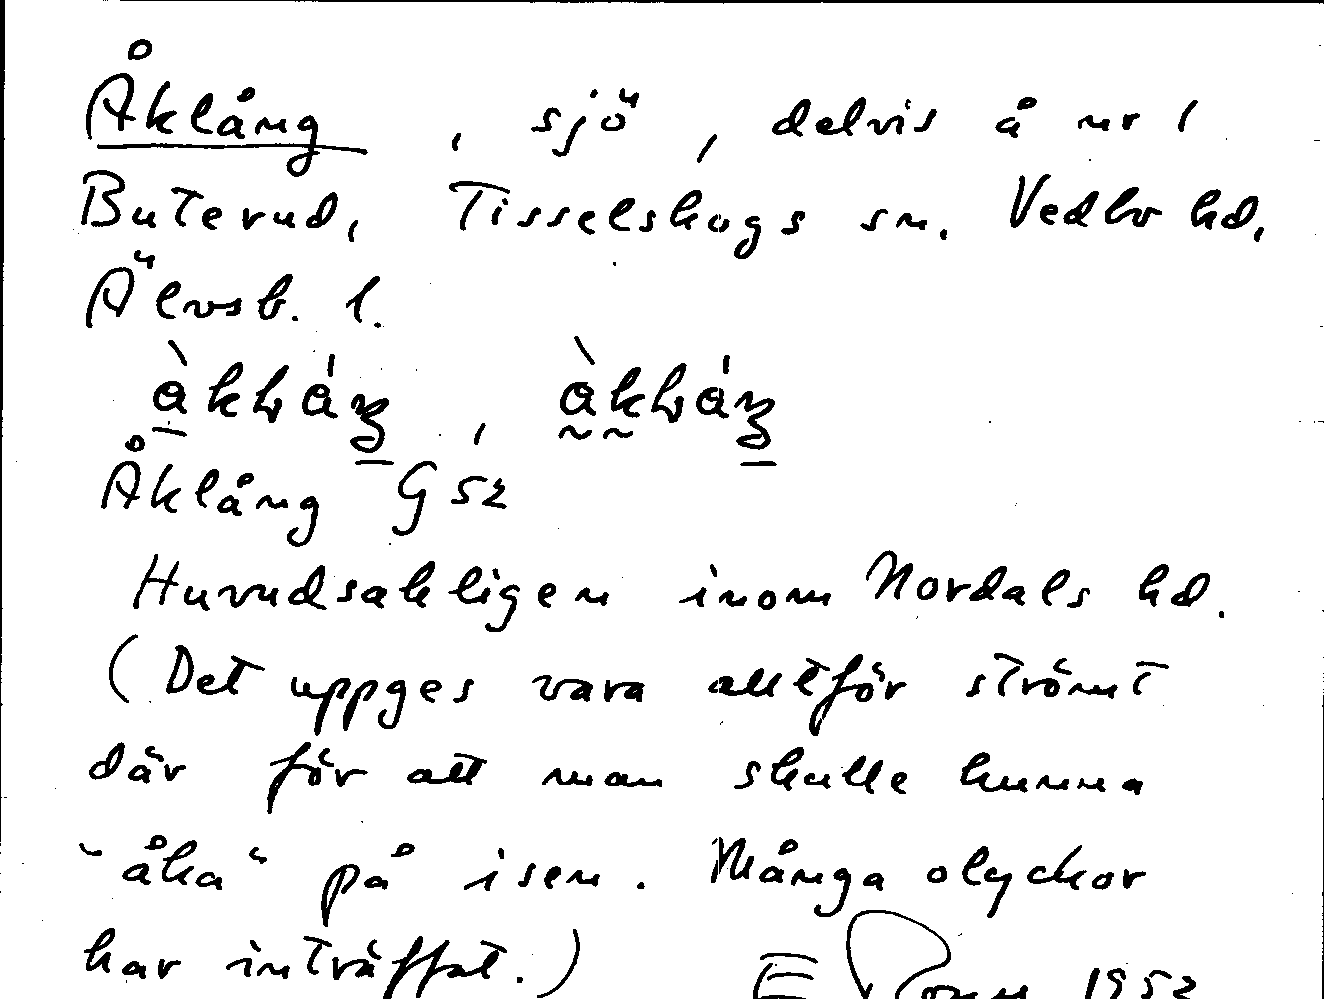 Åklång, sjö, delvis å nr 1
Buterud, Tisselskogs sn. Vedbo hd.
Älvsb. l.
Åklång G 52
Huvudsakligen inom Nordals hd.
(Det uppges vara alltför strömt
där för att man skulle kunna
"åka" på isen. Många olyckor
har inträffat.) 1952